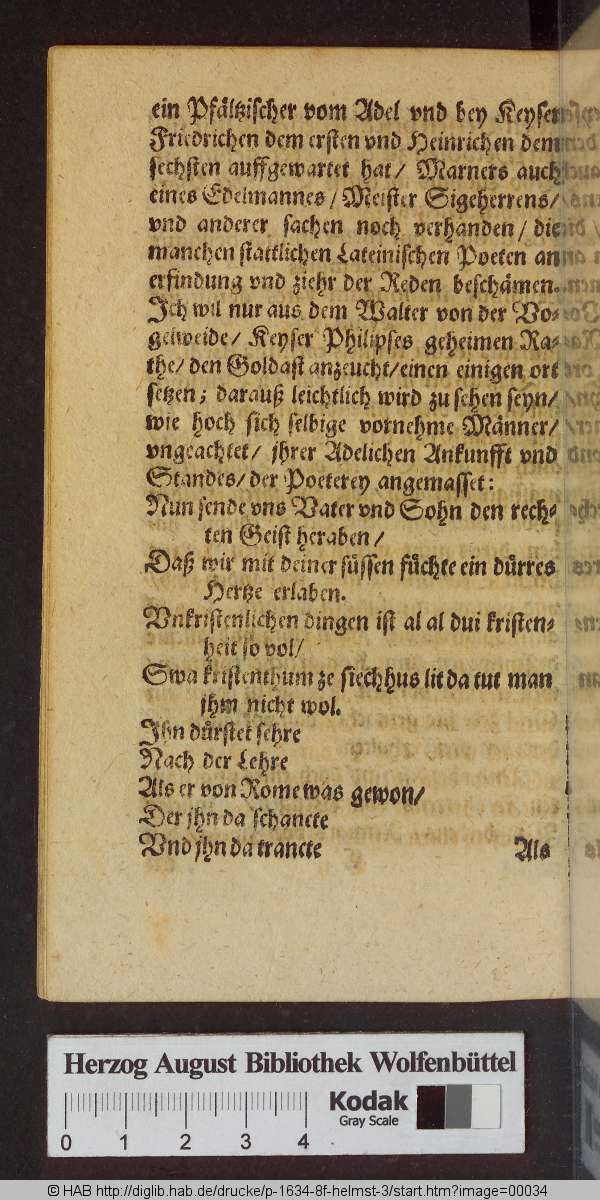 ein Pfältzischer vom Adel vnd bey Keyser
Friedrichen dem ersten vnd Heinrichen dem
sechsten auffgewartet hat/ Marners auch
eines Edelmannes/ Meister Sigeherrens/
vnd anderer sachen noch verhanden/ die
manchen stattlichen Lateinischen Poeten an
erfindung vnd ziehr der Reden beschämen.
Ich wil nur aus dem Walter von der Vo-
gelweide/ Keyser Philipses geheimen Ra-
the/ den Goldast anzeucht/ einen einigen ort
setzen; darauß leichtlich wird zu sehen seyn/
wie hoch sich selbige vornehme Männer/
vngeachtet/ jhrer Adelichen Ankunfft vnd
Standes/ der Poeterey angemasset:
Nun sende vns Vater vnd Sohn den rech-
ten Geist heraben/
Daß wir mit deiner süssen füchte ein dürres
Hertze erlaben.
Vnkristenlichen dingen ist al al dui kristen-
heit so vol/
Swa kristenthum ze siechhus lit da tut man
jhm nicht wol.
Ihn dürstet sehre
Nach der Lehre
Als er von Rome was gewon/
Der jhn da schancte
Vnd jhn da trancte Als
Herzog August Bibliothek Wolfenbüttel
0 1 2 3 4
Kodak
Gray Scale
© HAB http://diglib.hab.de/drucke/p-1634-8f-helmst-3/start.htm?image=00034